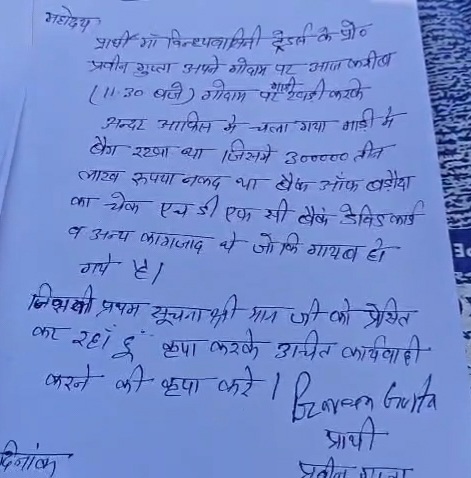 महोदय
प्रार्थी माँ विन्ध्यवासिनी ट्रेडर्स के प्रो०
प्रवीन गुप्ता अपने गोदाम पर आज करीब
(11:30 बजे) गोदाम पर गाड़ी खड़ी करके
अन्दर आफिस मे चला गया गाडी मे
बैग रखा था जिसमे 300000 तीन
लाख रूपया नकद था बैंक ऑफ बड़ौदा
का चेक एच डी एफ सी बैंक डेविड कार्ड
व अन्य कागजाद थे जो कि गायब हो
गये है।
जिसकी प्रथम सूचना श्री मान जी को प्रेषित
कर रहाँ हूँ कृपा करके उचित कार्यवाही
करने की कृपा करे।
Praveen Gupta
प्रार्थी
दिनांक
प्रवीन गुप्ता